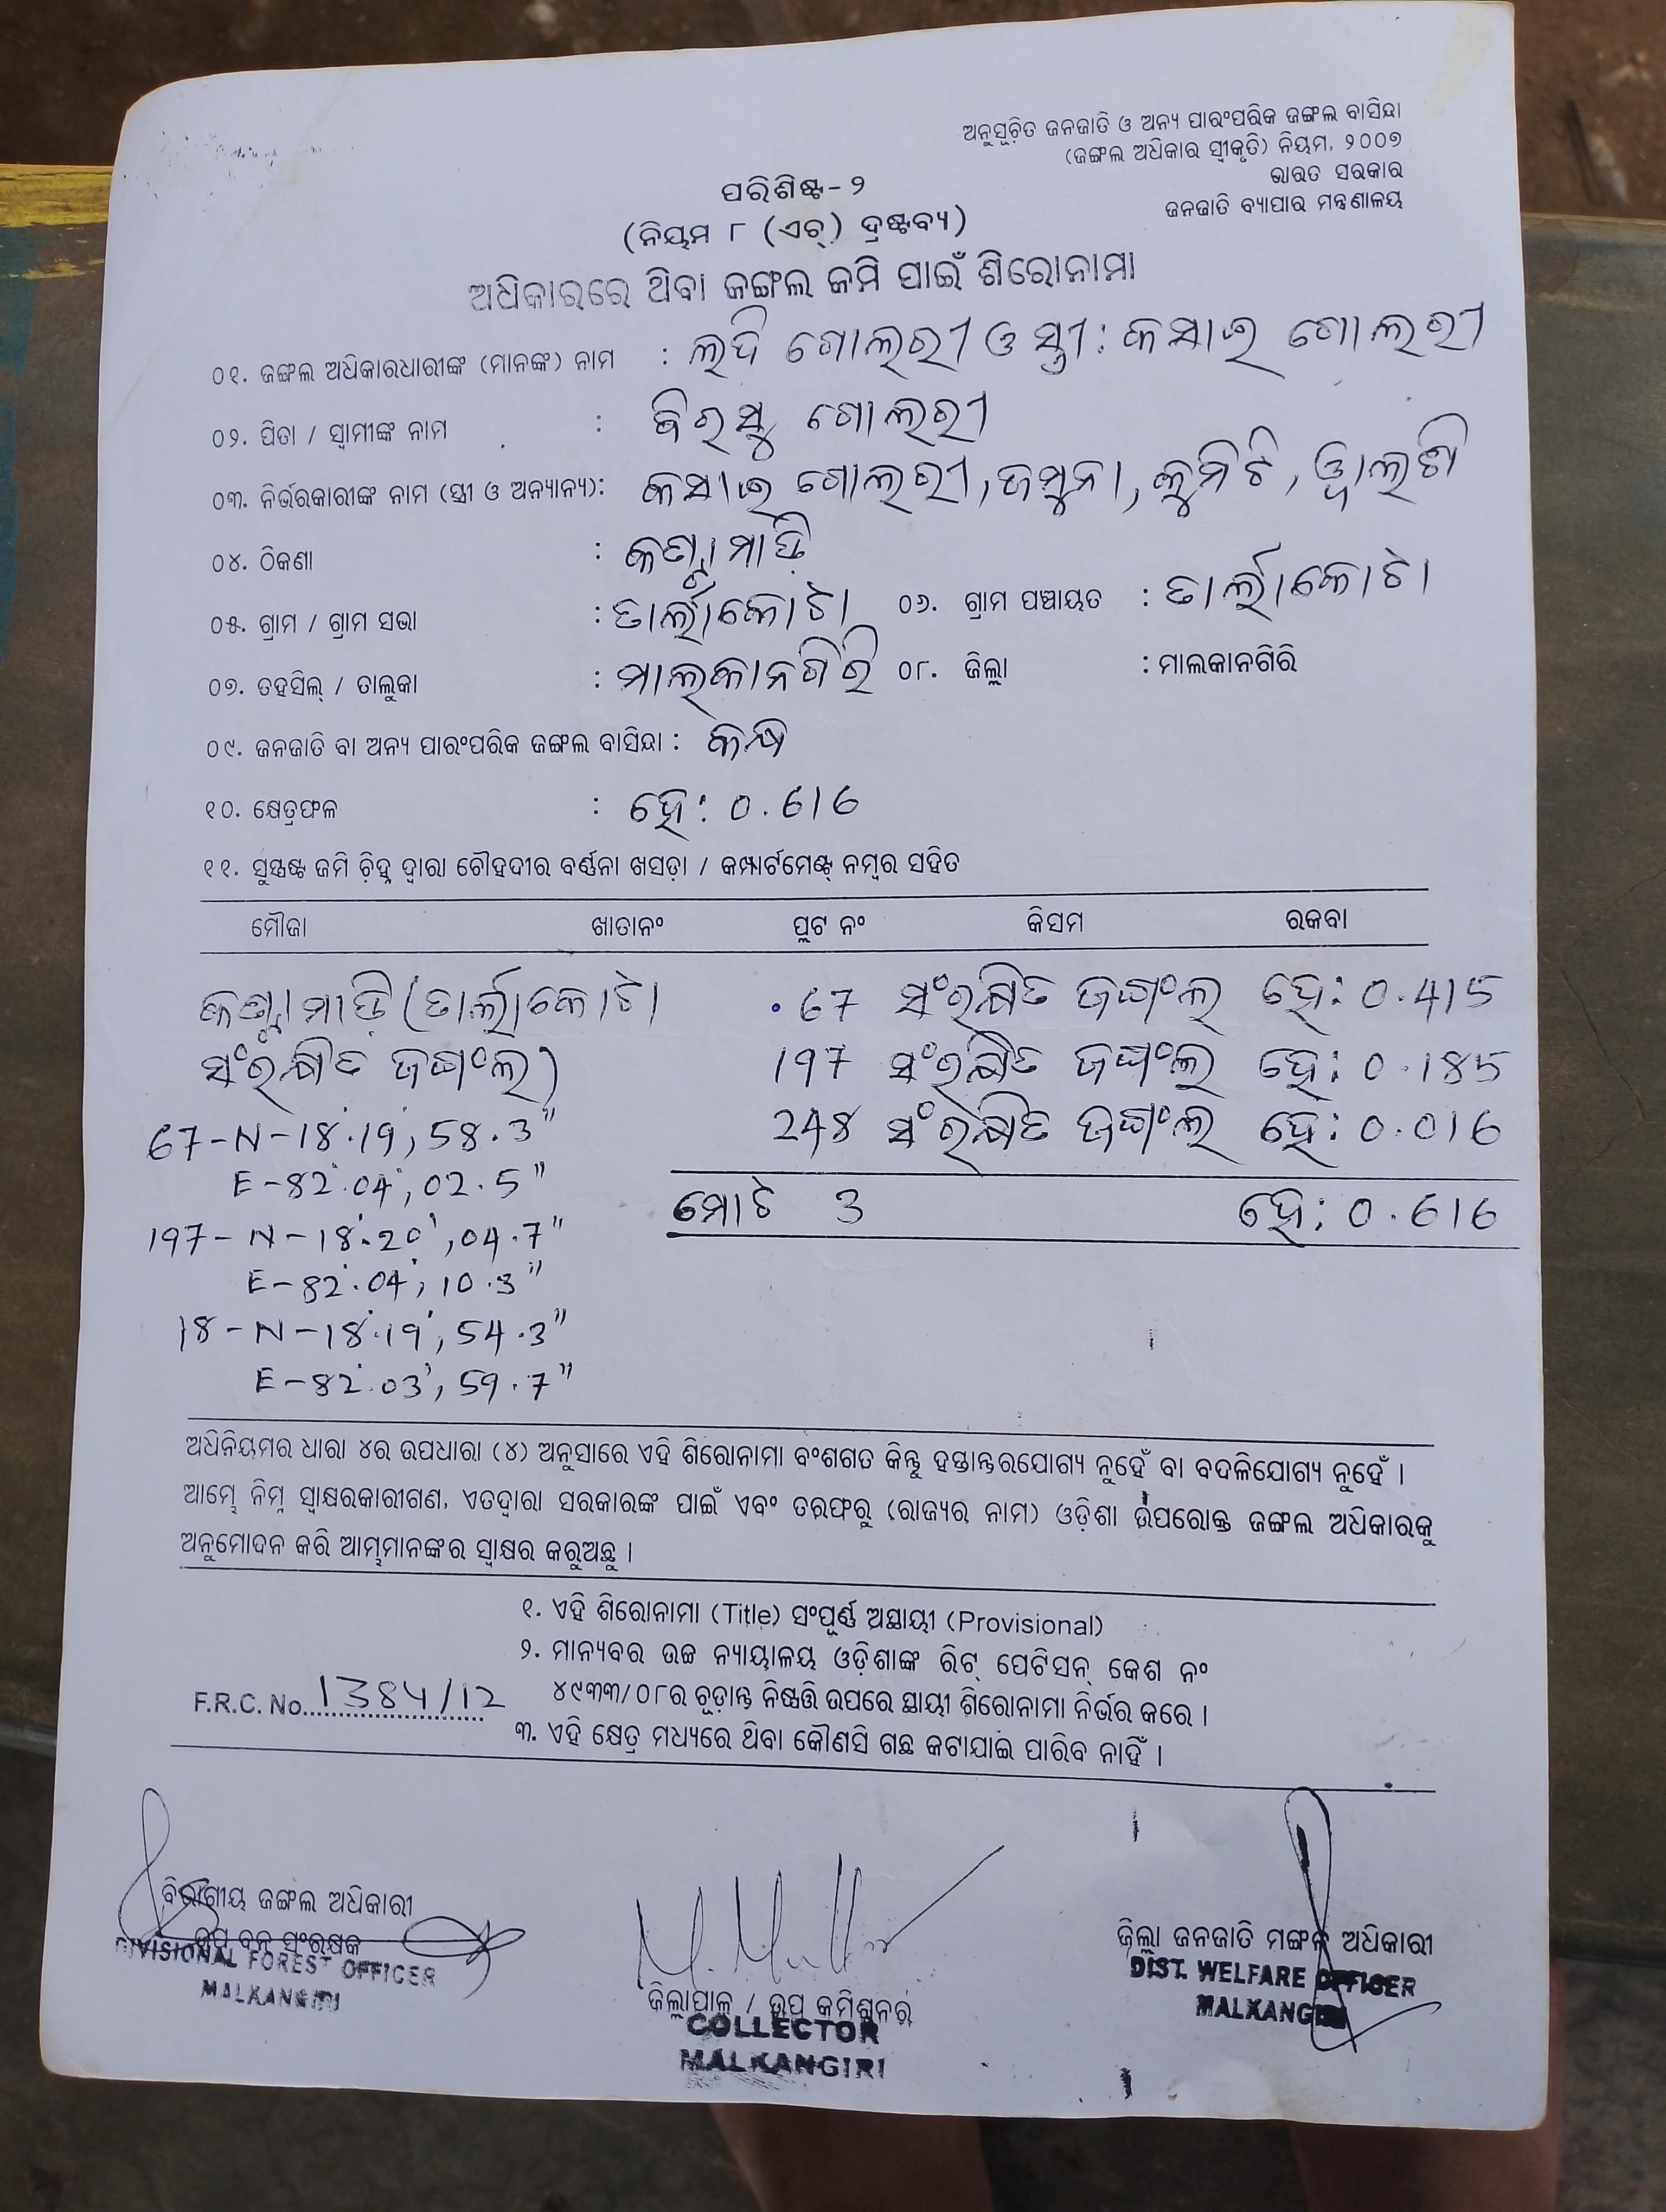 ଅନୁସୂଚିତ ଜନଜାତି ଓ ଅନ୍ୟ ପାରଂପରିକ ଜଙ୍ଗଲ ବାସିନ୍ଦା
(ଜଙ୍ଗଲ ଅଧିକାର ସ୍ୱୀକୃତି) ନିୟମ, ୨୦୦୭
ଭାରତ ସରକାର
ଜନଜାତି ବ୍ୟାପାର ମନ୍ତ୍ରଣାଳୟ
ପରିଶିଷ୍ଟ-୨
(ନିୟମ ୮ (ଏଚ୍) ଦ୍ରଷ୍ଟବ୍ୟ)
ଅଧିକାରରେ ଥିବା ଜଙ୍ଗଲ ଜମି ପାଇଁ ଶିରୋନାମା
୦୧. ଜଙ୍ଗଲ ଅଧିକାରଧାରୀଙ୍କ (ମାନଙ୍କ) ନାମ : ଲଦି ଗୋଲରୀ ଓ ସ୍ତ୍ରୀ: କସାଇ ଗୋଲରୀ
୦୨. ପିତା / ସ୍ୱାମୀଙ୍କ ନାମ : ଗୋଲରୀ
୦୩. ନିର୍ଭରକାରୀଙ୍କ ନାମ (ସ୍ତ୍ରୀ ଓ ଅନ୍ୟାନ୍ୟ): କସାଇ ଗୋଲରୀ, ଜମୁନା,
୦୪. ଠିକଣା :
୦୫. ଗ୍ରାମ / ଗ୍ରାମ ସଭା : ତାର୍ଲାକୋଟା ୦୬. ଗ୍ରାମ ପଞ୍ଚାୟତ : ତାର୍ଲାକୋଟା
୦୭. ତହସିଲ୍ / ତାଲୁକା : ମାଲକାନଗିରି ୦୮. ଜିଲ୍ଲା : ମାଲକାନଗିରି
୦୯. ଜନଜାତି ବା ଅନ୍ୟ ପାରଂପରିକ ଜଙ୍ଗଲ ବାସିନ୍ଦା : କନ୍ଧ
୧୦. କ୍ଷେତ୍ରଫଳ : ହେ: 0.616
୧୧. ସୁସ୍ପଷ୍ଟ ଜମି ଚିହ୍ନ ଦ୍ୱାରା ଚୌହଦୀର ବର୍ଣ୍ଣନା ଖସଡ଼ା / କମ୍ପାର୍ଟମେଣ୍ଟ୍ ନମ୍ବର ସହିତ
ମୌଜା ଖାତାନଂ ପ୍ଲଟ ନଂ କିସମ ରକବା
(ତାର୍ଲାକୋଟା 67 ସଂରକ୍ଷିତ ଜଙ୍ଗଲ ହେ: 0.415
ସଂରକ୍ଷିତ ଜଙ୍ଗଲ) 197 ସଂରକ୍ଷିତ ଜଙ୍ଗଲ ହେ: 0.185
67-N-18°.19', 58.3" 248 ସଂରକ୍ଷିତ ଜଙ୍ଗଲ ହେ: 0.016
E-82°.04', 02.5"
ମୋଟ 3 ହେ: 0.616
197-N-18°.20', 04.7"
E-82°.04', 10.3"
18-N-18°.19', 54.3"
E-82°.03', 59.7"
ଅଧିନିୟମର ଧାରା ୪ର ଉପଧାରା (୪) ଅନୁସାରେ ଏହି ଶିରୋନାମା ବଂଶଗତ କିନ୍ତୁ ହସ୍ତାନ୍ତରଯୋଗ୍ୟ ନୁହେଁ ବା ବଦଳିଯୋଗ୍ୟ ନୁହେଁ ।
ଆମ୍ଭେ ନିମ୍ନ ସ୍ୱାକ୍ଷରକାରୀଗଣ, ଏତଦ୍ୱାରା ସରକାରଙ୍କ ପାଇଁ ଏବଂ ତରଫରୁ (ରାଜ୍ୟର ନାମ) ଓଡ଼ିଶା ଉପରୋକ୍ତ ଜଙ୍ଗଲ ଅଧିକାରକୁ
ଅନୁମୋଦନ କରି ଆମ୍ଭମାନଙ୍କର ସ୍ୱାକ୍ଷର କରୁଅଛୁ ।
୧. ଏହି ଶିରୋନାମା (Title) ସଂପୂର୍ଣ୍ଣ ଅସ୍ଥାୟୀ (Provisional)
୨. ମାନ୍ୟବର ଉଚ୍ଚ ନ୍ୟାୟାଳୟ ଓଡ଼ିଶାଙ୍କ ରିଟ୍ ପେଟିସନ୍ କେଶ ନଂ
୪୯୩୩/୦୮ର ଚୂଡ଼ାନ୍ତ ନିଷ୍ପତ୍ତି ଉପରେ ସ୍ଥାୟୀ ଶିରୋନାମା ନିର୍ଭର କରେ ।
F.R.C. No. 1384/12
୩. ଏହି କ୍ଷେତ୍ର ମଧ୍ୟରେ ଥିବା କୌଣସି ଗଛ କଟାଯାଇ ପାରିବ ନାହିଁ ।
ବିଭାଗୀୟ ଜଙ୍ଗଲ ଅଧିକାରୀ
ଉପ ବନ ସଂରକ୍ଷକ
DIVISIONAL FOREST OFFICER
MALKANGIRI
ଜିଲ୍ଲାପାଳ / ଉପ କମିଶନର
COLLECTOR
MALKANGIRI
ଜିଲ୍ଲା ଜନଜାତି ମଙ୍ଗଳ ଅଧିକାରୀ
DIST. WELFARE OFFICER
MALKANGIRI